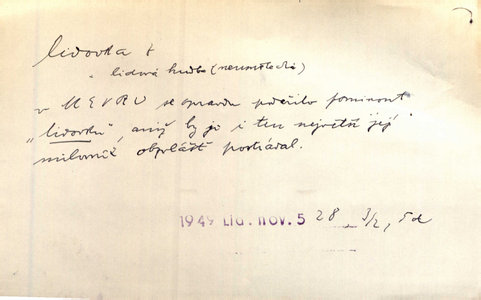 lidovka f
= lidová hudba (neumělecká)
v MEVRU se opravdu podařilo pominout
„lidovku", aniž by ji i ten největší její
milovník obzvlášť postrádal.
1949 Lid. nov. 5 28 3/2, Sd